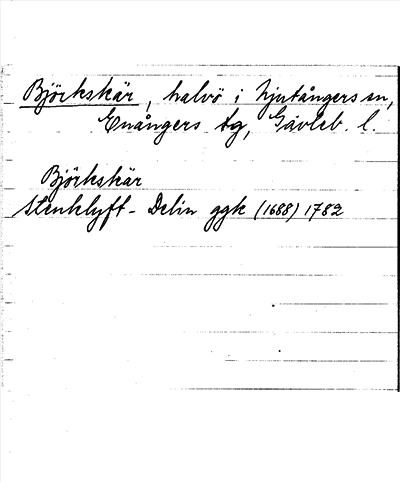 Björkskär, halvö i Njutångers sn,
Enångers tg, Gävleb. l.
Björkskär
Stenklyft - Delin ggk (1688) 1782